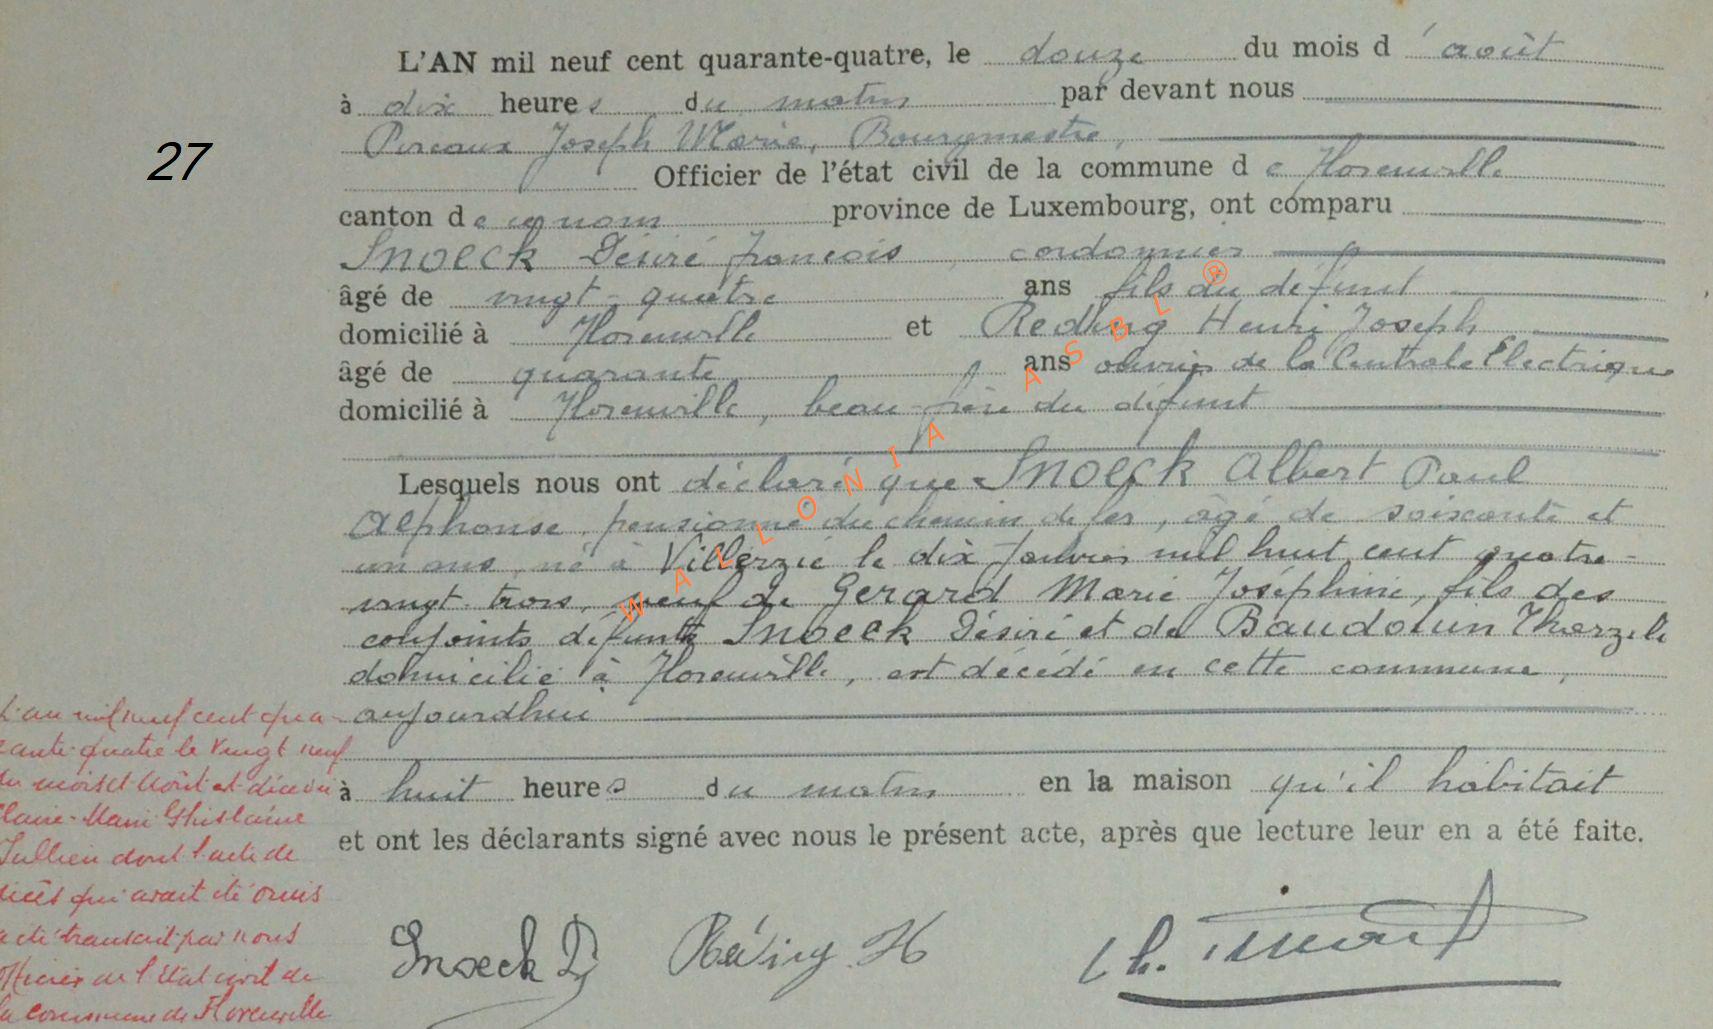 L'AN mil neuf cent quarante-quatre, le douze du mois d 'août
à dix heures du matin par devant nous
Joseph Marie, Bourgmestre,
27
Officier de l'état civil de la commune de Florenville
canton de ce nom province de Luxembourg, ont comparu
Snoeck Désiré François, cordonnier
âgé de vingt-quatre ans fils du défunt
domicilié à Florenville et Reding Henri Joseph
âgé de quarante ans ouvrier de la Centrale Electrique
domicilié à Florenville, beau-frère du défunt
Lesquels nous ont déclaré que Snoeck Albert Paul
Alphonse, pensionné du chemin de fer, âgé de soixante et
un ans, né à Villerzie le dix Janvier mil huit cent quatre-
vingt-trois, veuf de Gerard Marie Joséphine, fils des
conjoints défunts Snoeck Désiré et de Baudouin
domicilié à Florenville, est décédé en cette commune,
aujourdhui
à huit heures du matin en la maison qu'il habitait
et ont les déclarants signé avec nous le présent acte, après que lecture leur en a été faite.
Snoeck D
L'an mil neuf cent qua-
rante-quatre le vingt neuf
du mois d'Août est décédée
Claire-Marie Ghislaine
Jullien dont l'acte de
décès qui avait été omis
a été transcrit par nous
Officier de l'Etat civil de
la commune de Florenville
WALLONIA ASBL ®